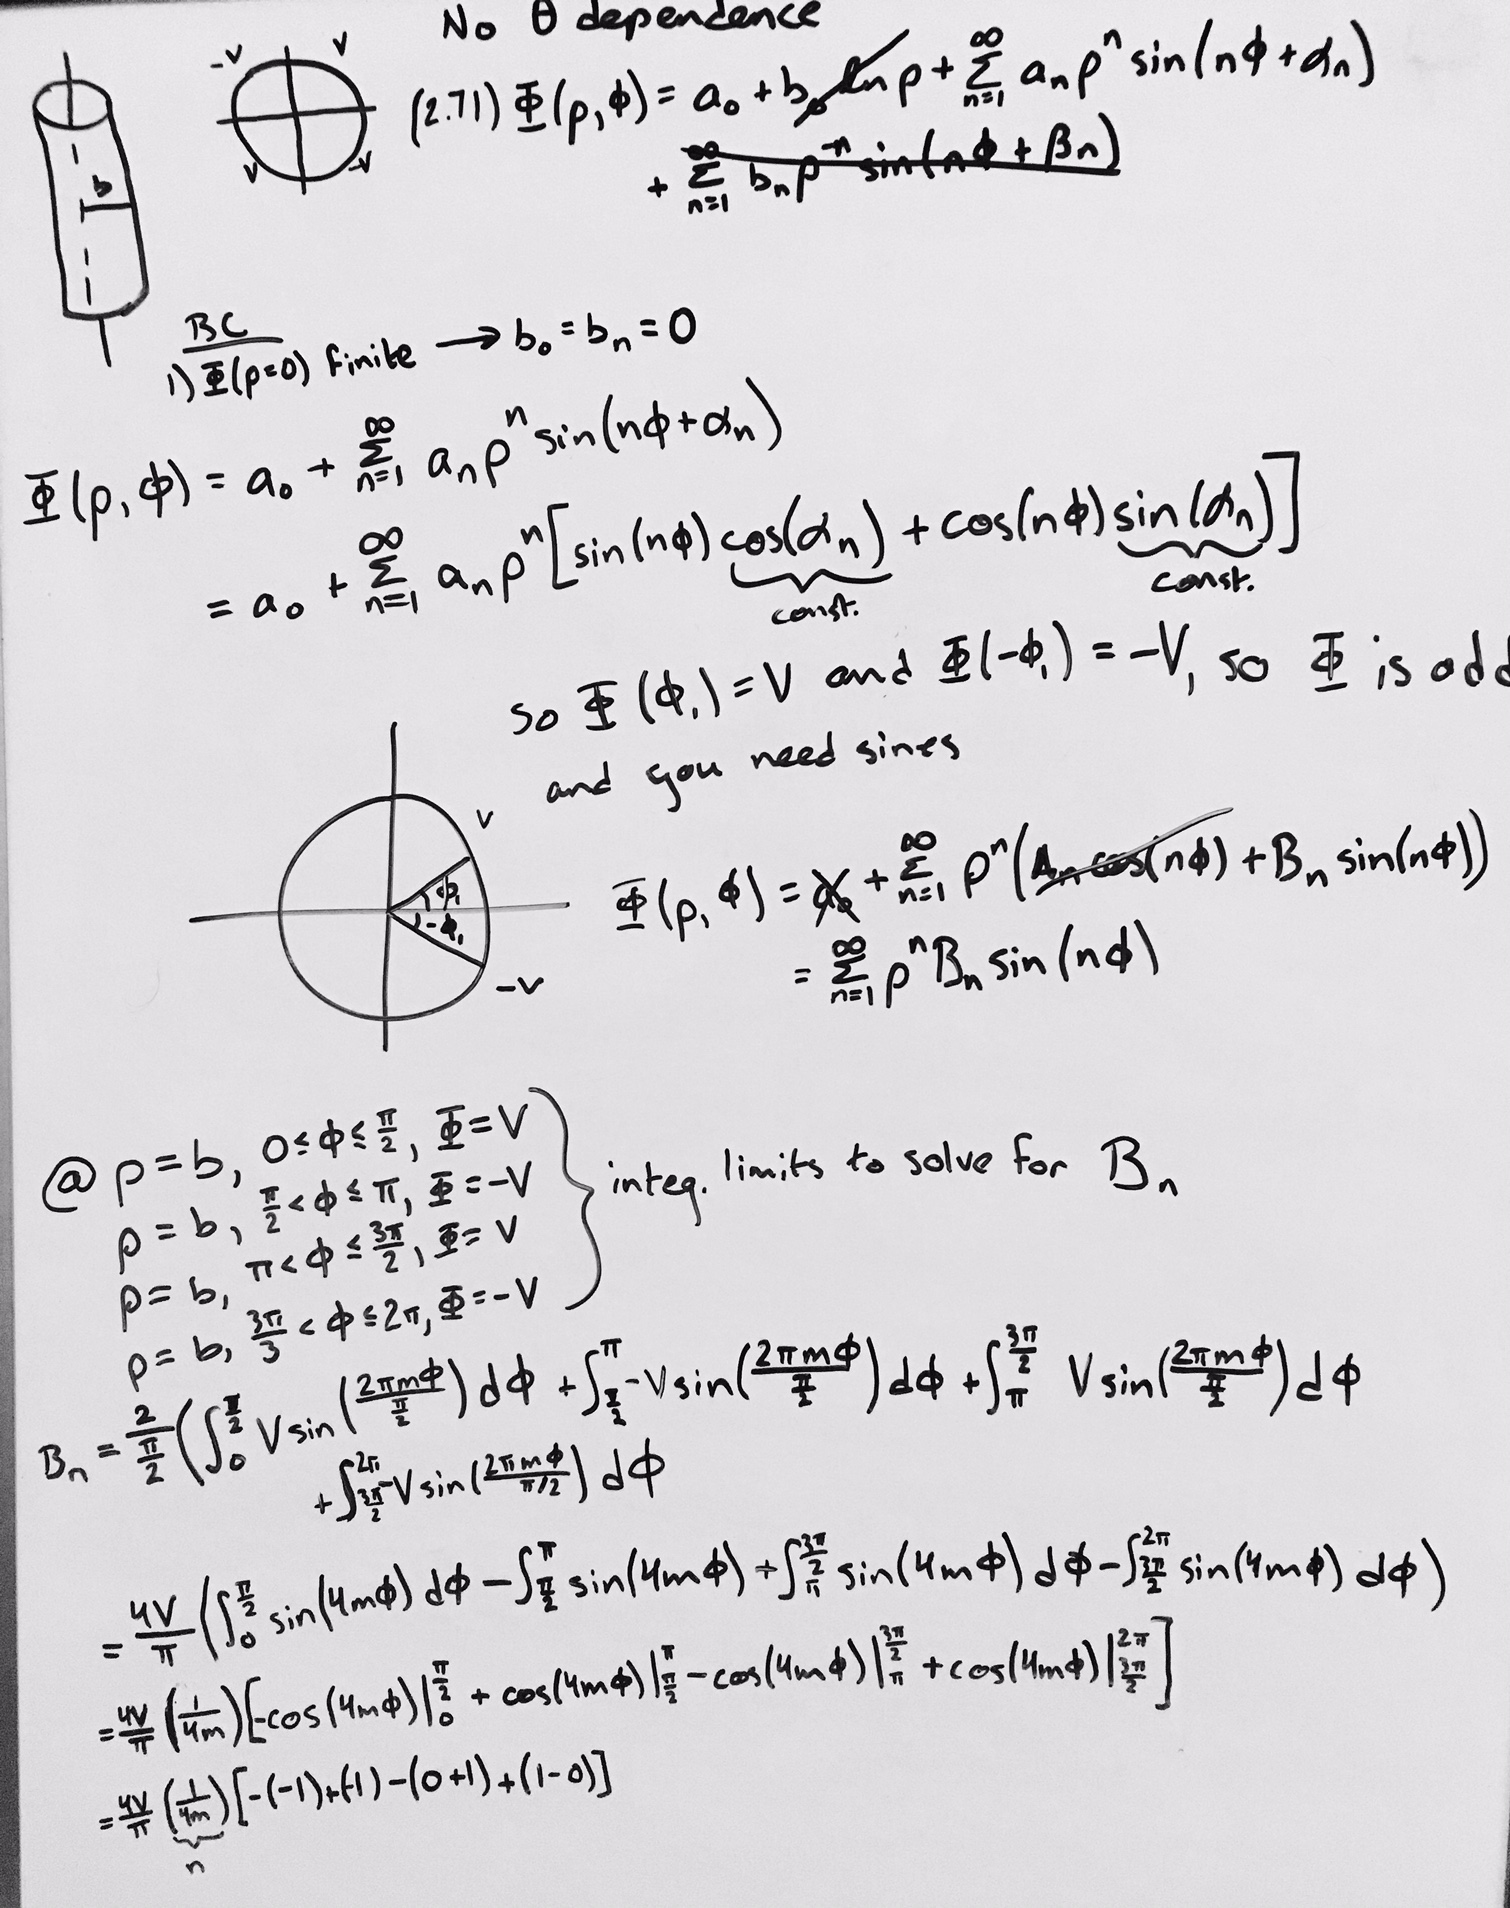 No θ dependence
-V V
V -V
(2.71) Φ(ρ,ϕ) = a₀ + b₀ ln ρ + ∑_{n=1}^{∞} aₙρⁿ sin(nϕ+αₙ)
+ ∑_{n=1}^{∞} bₙρ⁻ⁿ sin(nϕ + βₙ)
b
BC
1) Φ(ρ=0) finite → b₀ = bₙ = 0
Φ(ρ,ϕ) = a₀ + ∑_{n=1}^{∞} aₙρⁿ sin(nϕ+αₙ)
= a₀ + ∑_{n=1}^{∞} aₙρⁿ[sin(nϕ) cos(αₙ) + cos(nϕ) sin(αₙ)]
const. const.
so Φ(ϕ₁) = V and Φ(-ϕ₁) = -V, so Φ is odd
and you need sines
V
ϕ₁
-ϕ₁
-V
Φ(ρ,ϕ) = a₀ + ∑_{n=1}^{∞} ρⁿ(Aₙ cos(nϕ) + Bₙ sin(nϕ))
= ∑_{n=1}^{∞} ρⁿBₙ sin(nϕ)
@ ρ=b, 0≤ϕ≤π/2, Φ=V
ρ=b, π/2<ϕ≤π, Φ=-V
ρ=b, π<ϕ≤3π/2, Φ=V
ρ=b, 3π/3<ϕ≤2π, Φ=-V
integ. limits to solve for Bₙ
Bₙ = 2/(π/2) (∫_0^{π/2} V sin(2πmϕ/(π/2)) dϕ + ∫_{π/2}^{π} -V sin(2πmϕ/(π/2)) dϕ + ∫_{π}^{3π/2} V sin(2πmϕ/(π/2)) dϕ
+ ∫_{3π/2}^{2π} -V sin(2πmϕ/(π/2)) dϕ
= 4V/π (∫_0^{π/2} sin(4mϕ) dϕ - ∫_{π/2}^{π} sin(4mϕ) + ∫_{π}^{3π/2} sin(4mϕ) dϕ - ∫_{3π/2}^{2π} sin(4mϕ) dϕ)
= 4V/π (1/4m)[-cos(4mϕ)|_0^{π/2} + cos(4mϕ)|_{π/2}^{π} - cos(4mϕ)|_{π}^{3π/2} + cos(4mϕ)|_{3π/2}^{2π}]
= 4V/π (1/4m)[-(-1)+(-1)-(0+1)+(1-0)]
n